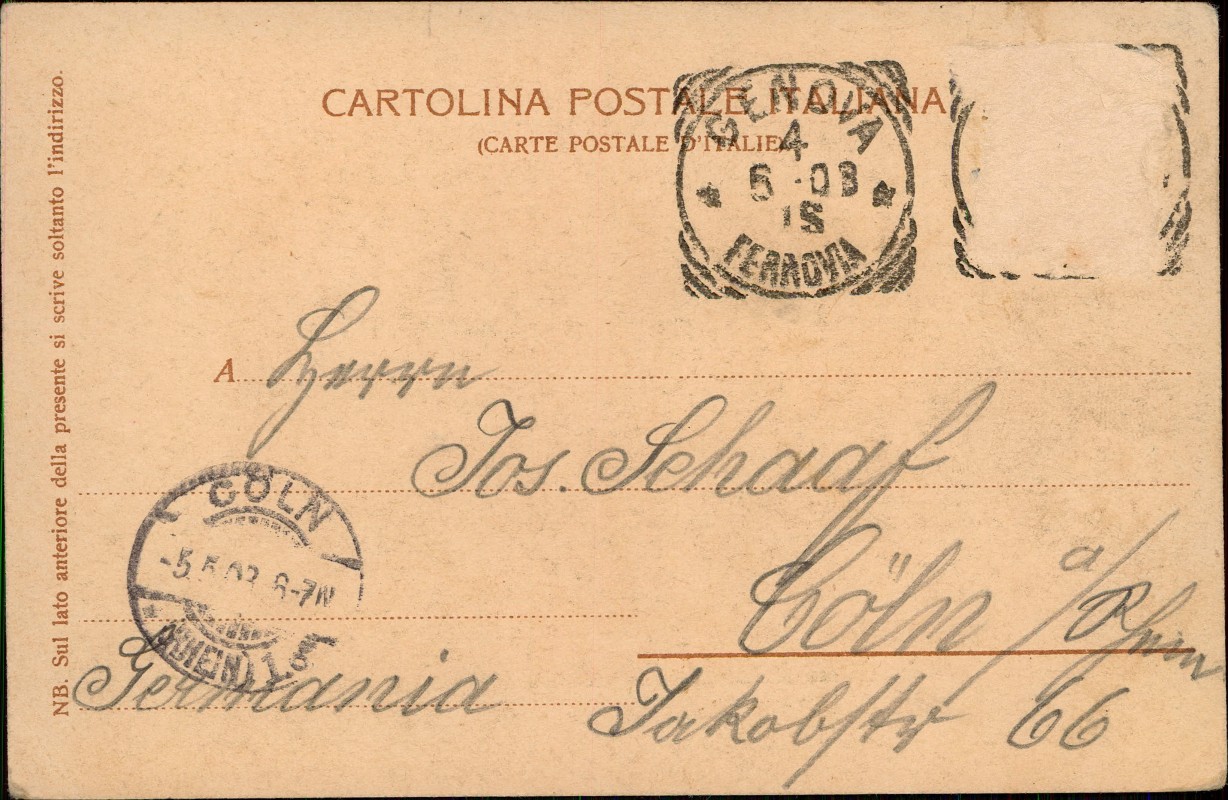 CARTOLINA POSTALE ITALIANA
(CARTE POSTALE D'ITALIE)
GENOVA
4
5 -03
18
FERROVIA
NB. Sul lato anteriore della presente si scrive soltanto l'indirizzo.
A Herrn
Jos. Schaaf
Cöln a/Rhein
Germania Jakobstr 66
CÖLN
-5.5.03. 6-7N
(RHEIN) 1